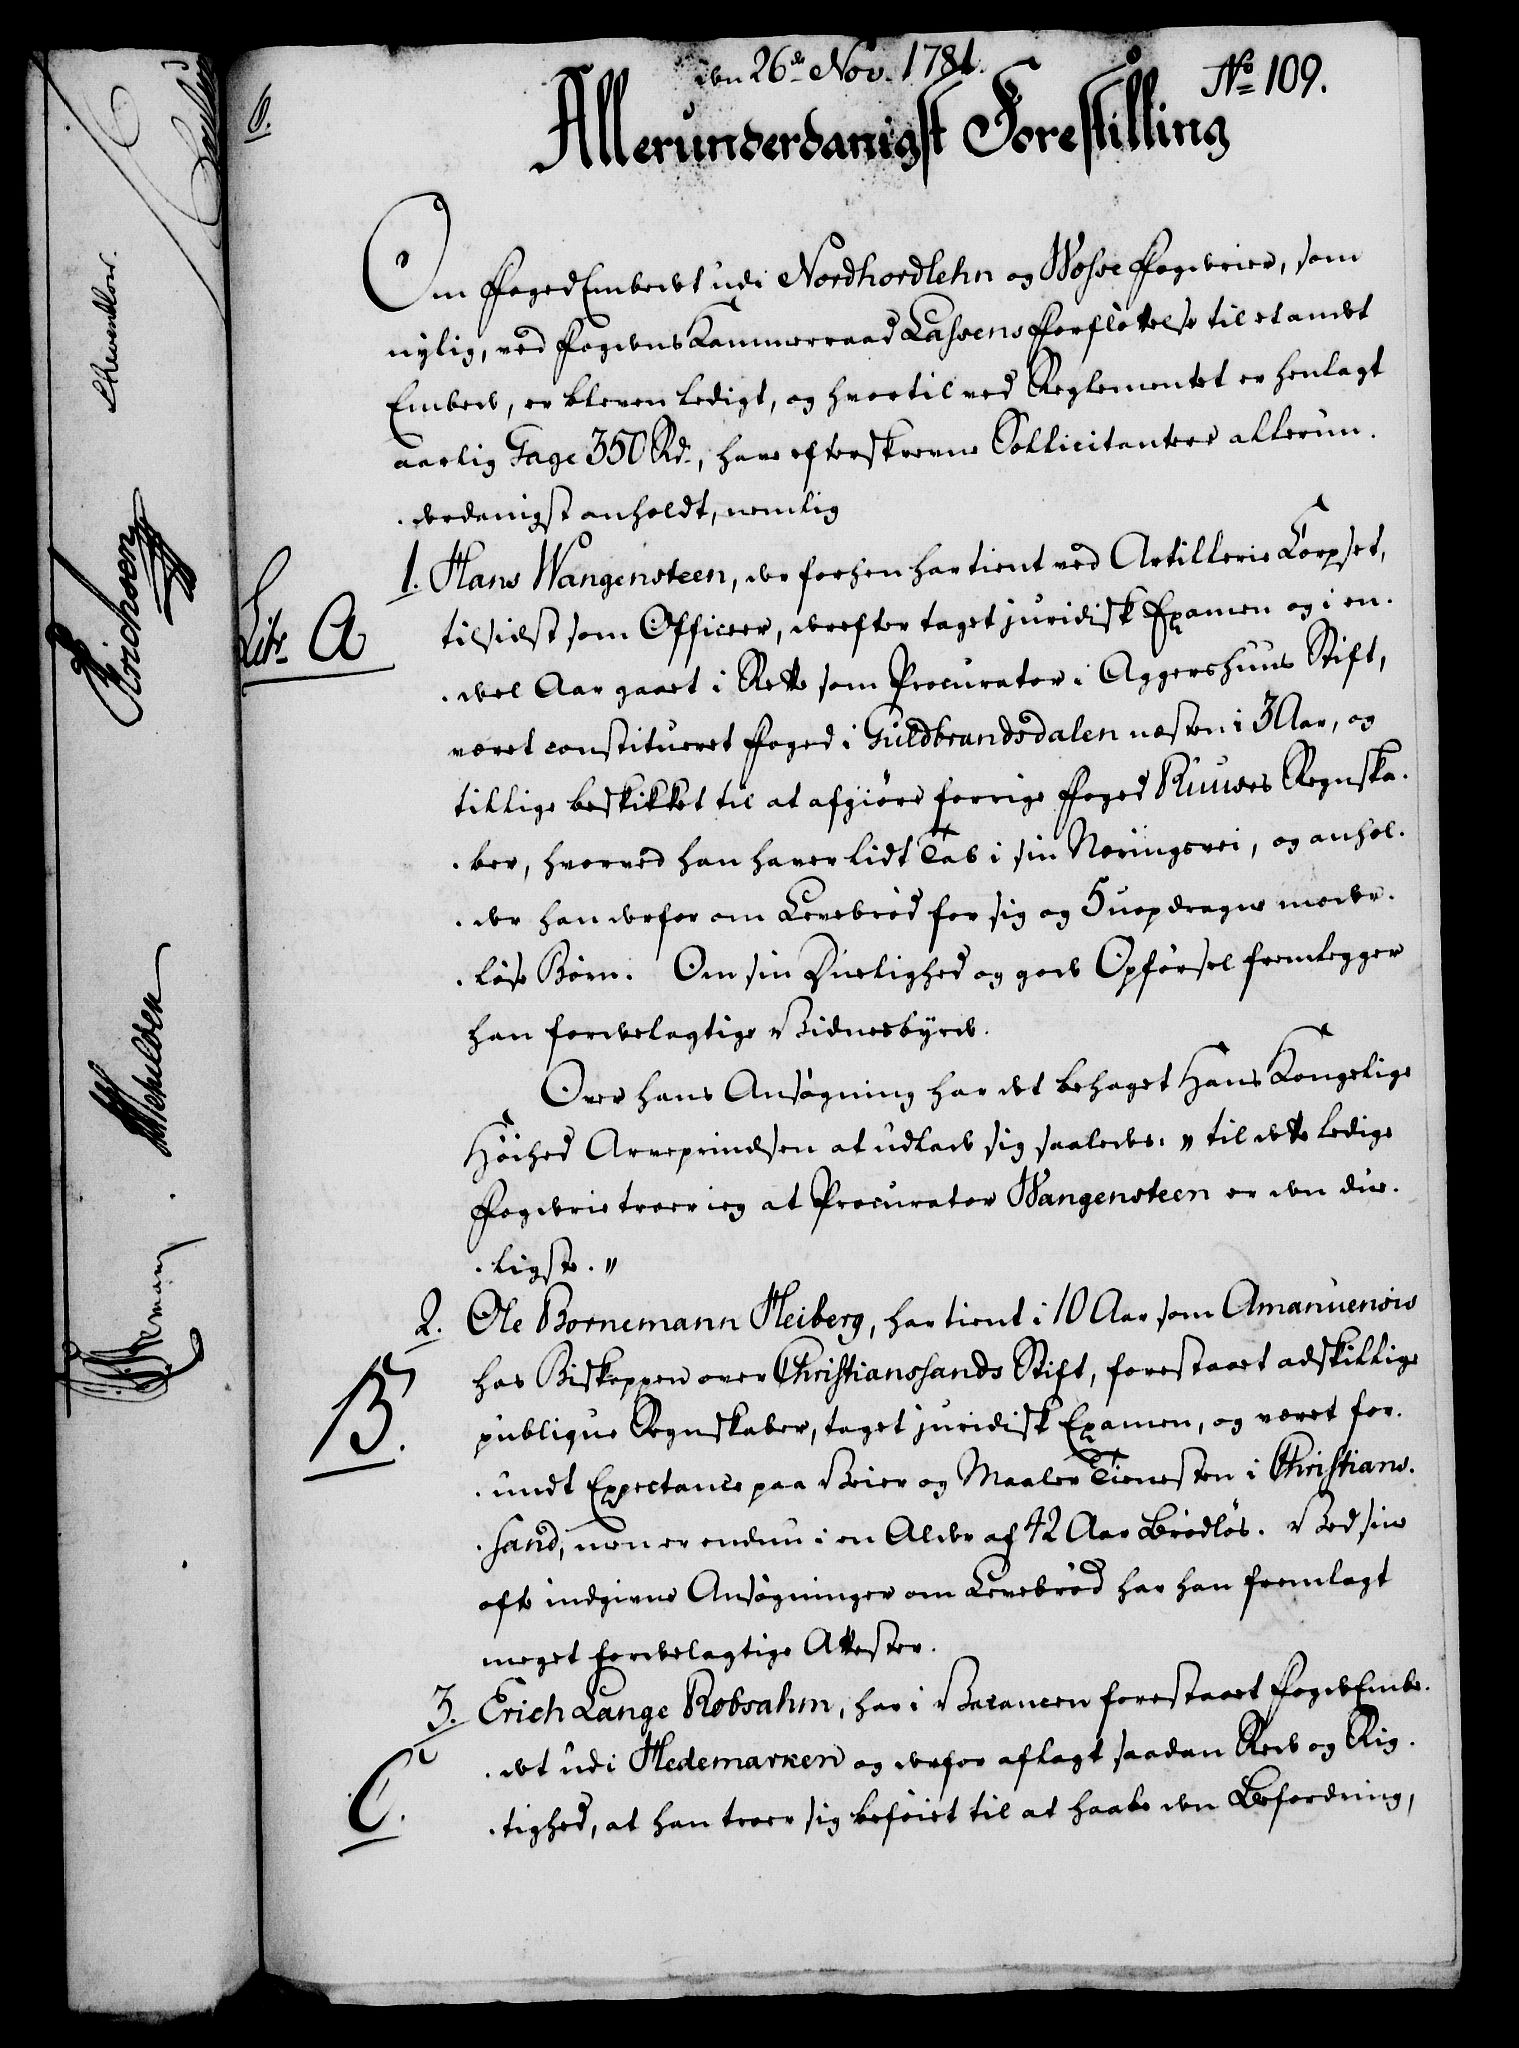 den 26de Nov. 1781.
No 109.
Allerunderdanigst Forestilling
Om Foged Embedet udi Nordhordlehn og Wosse Fogderie, som
nylig, ved Fogdens Kammerraad Lassens Forfløttelse til et andet
Embede, er bleven ledigt, og hvortil ved Reglementet er henlagt
aarlig Gage 350 Rd., have efterskrevne Sollicitantere allerun-
-derdanigst anholdt, nemlig
Litr. A
1. Hans Wangensteen, der forhen har tient ved Artillerie Corpset,
tilsidst som Officeer, derefter taget juridisk Examen og i en-
-deel Aar gaaet i Rette som Procurator i Aggershuus Stift,
været constitueret Foged i Guldbrandsdalen næsten i 3 Aar, og
tillige beskikket til at afgiøre forrige Foged Ruuses Regnska-
-ber, hvorved han haver lidt Tab i sin Næringsvei, og anhol-
-der han derfor om Levebrød for sig og 5 uopdragne moder-
-løse Børn. Om sin Duelighed og gode Opførsel fremlegger
han fordeelagtige Vidnesbyrd.
Over hans Ansøgning har det behaget Hans Kongelige
Høihed Arveprindsen at udlade sig saaledes: „til dette ledige
Fogderie troer ieg at Procurator Wangensteen er den due-
-ligste.„
B.
2. Ole Bornemann Heiberg, har tient i 10 Aar som Amanuensis
hos Biskoppen over Christianssands Stift, forestaaet adskillige
publique Regnskaber, taget juridisk Examen, og været for-
-undt Expectance paa Veier og Maaler Tienesten i Christians-
-sand, men er endnu i en Alder af 42 Aar Brødløs. Ved sine
ofte indgivne Ansøgninger om Levebrød har han fremlagt
meget fordeelagtige Attester.
C.
3. Erich Lange Robsahm, har i Vacancen forestaaet Foged Embe-
-det udi Hedemarken og derfor aflagt saadan Rede og Rig-
-tighed, at han troer sig beføiet til at haabe den Befordring,